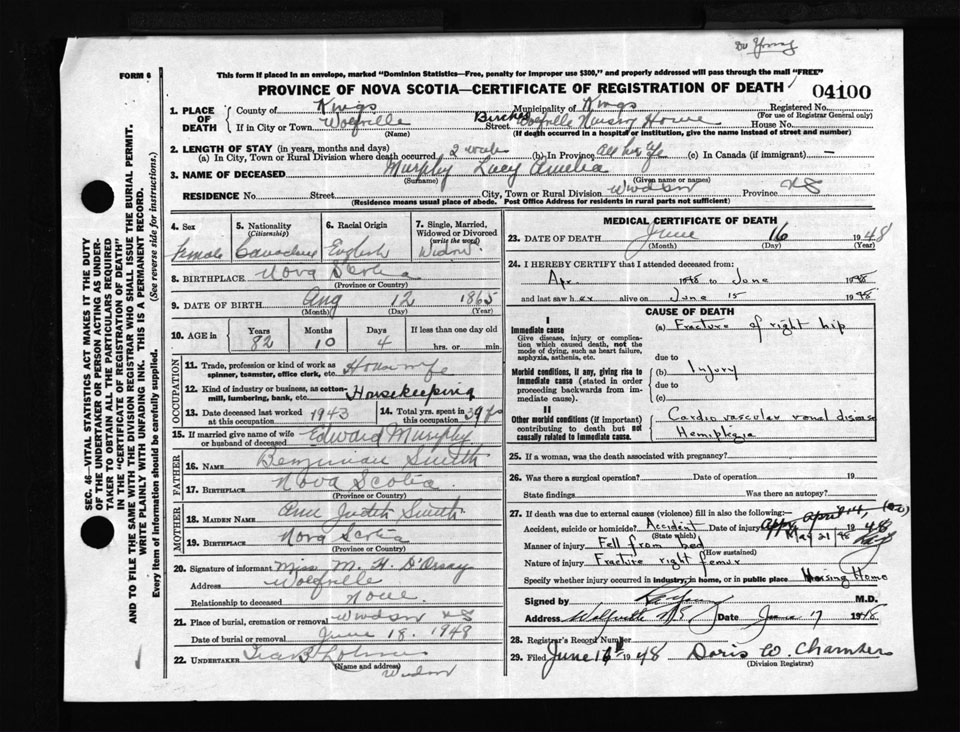 FORM 6
This form if placed in an envelope, marked "Dominion Statistics—Free, penalty for improper use $300," and properly addressed will pass through the mail "FREE"
PROVINCE OF NOVA SCOTIA—CERTIFICATE OF REGISTRATION OF DEATH
04100
1. PLACE OF DEATH
County of Kings Municipality of Kings Registered No.
(For use of Registrar General only)
If in City or Town Wolfville (Name) Street Wolfville Nursing Home House No.
(If death occurred in a hospital or institution, give the name instead of street and number)
2. LENGTH OF STAY (in years, months and days)
(a) In City, Town or Rural Division where death occurred 2 weeks (b) In Province All her life (c) In Canada (if immigrant) —
3. NAME OF DECEASED Murphy Lucy Amelia
(Surname) (Given name or names)
RESIDENCE No. Street City, Town or Rural Division Windsor Province NS
(Residence means usual place of abode. Post Office Address for residents in rural parts not sufficient)
4. Sex Female
5. Nationality (Citizenship) Canadian
6. Racial Origin English
7. Single, Married, Widowed or Divorced (write the word) Widow
8. BIRTHPLACE Nova Scotia
(Province or Country)
9. DATE OF BIRTH Aug 12 1865
(Month) (Day) (Year)
10. AGE in Years 82 Months 10 Days 4 If less than one day old hrs. or min.
OCCUPATION
11. Trade, profession or kind of work as spinner, teamster, office clerk, etc. Housewife
12. Kind of industry or business, as cotton-mill, lumbering, bank, etc. Housekeeping
13. Date deceased last worked at this occupation 1943
14. Total yrs. spent in this occupation 39 yrs
15. If married give name of wife or husband of deceased Edward Murphy
FATHER
16. NAME Benjamin Smith
17. BIRTHPLACE Nova Scotia
(Province or Country)
MOTHER
18. MAIDEN NAME Ann Judith Smith
19. BIRTHPLACE Nova Scotia
(Province or Country)
20. Signature of informant Miss M. H. D'Orsay
Address Wolfville
Relationship to deceased None
21. Place of burial, cremation or removal Windsor NS
Date of burial or removal June 18. 1948
22. UNDERTAKER
(Name and address)
Windsor
MEDICAL CERTIFICATE OF DEATH
23. DATE OF DEATH June 16 1948
(Month) (Day) (Year)
24. I HEREBY CERTIFY that I attended deceased from:
Apr 1948 to June 1948
and last saw her alive on June 15 1948
CAUSE OF DEATH
I
Immediate cause
Give disease, injury or complication which caused death, not the mode of dying, such as heart failure, asphyxia, asthenia, etc.
(a) Fracture of right hip
due to
Morbid conditions, if any, giving rise to immediate cause (stated in order proceeding backwards from immediate cause).
(b) Injury
due to
(c)
II
Other morbid conditions (if important) contributing to death but not causally related to immediate cause.
Cardio vascular renal disease
Hemiplegia
25. If a woman, was the death associated with pregnancy?
26. Was there a surgical operation? Date of operation 19
State findings Was there an autopsy?
27. If death was due to external causes (violence) fill in also the following:
Accident, suicide or homicide? Accident Date of injury April 14, 1948
(State which) May 21/48
Manner of injury Fell from bed
(How sustained)
Nature of injury Fracture right femur
Specify whether injury occurred in industry, in home, or in public place Nursing Home
Signed by M.D.
Address Wolfville N S Date June 17 1948
28. Registrar's Record Number
29. Filed June 16th 1948 Doris W. Chambers
(Division Registrar)
SEC. 46—VITAL STATISTICS ACT MAKES IT THE DUTY OF THE UNDERTAKER OR PERSON ACTING AS UNDERTAKER TO OBTAIN ALL THE PARTICULARS REQUIRED IN THE "CERTIFICATE OF REGISTRATION OF DEATH" AND TO FILE THE SAME WITH THE DIVISION REGISTRAR WHO SHALL ISSUE THE BURIAL PERMIT.
WRITE PLAINLY WITH UNFADING INK. THIS IS A PERMANENT RECORD.
Every item of information should be carefully supplied. (See reverse side for instructions.)